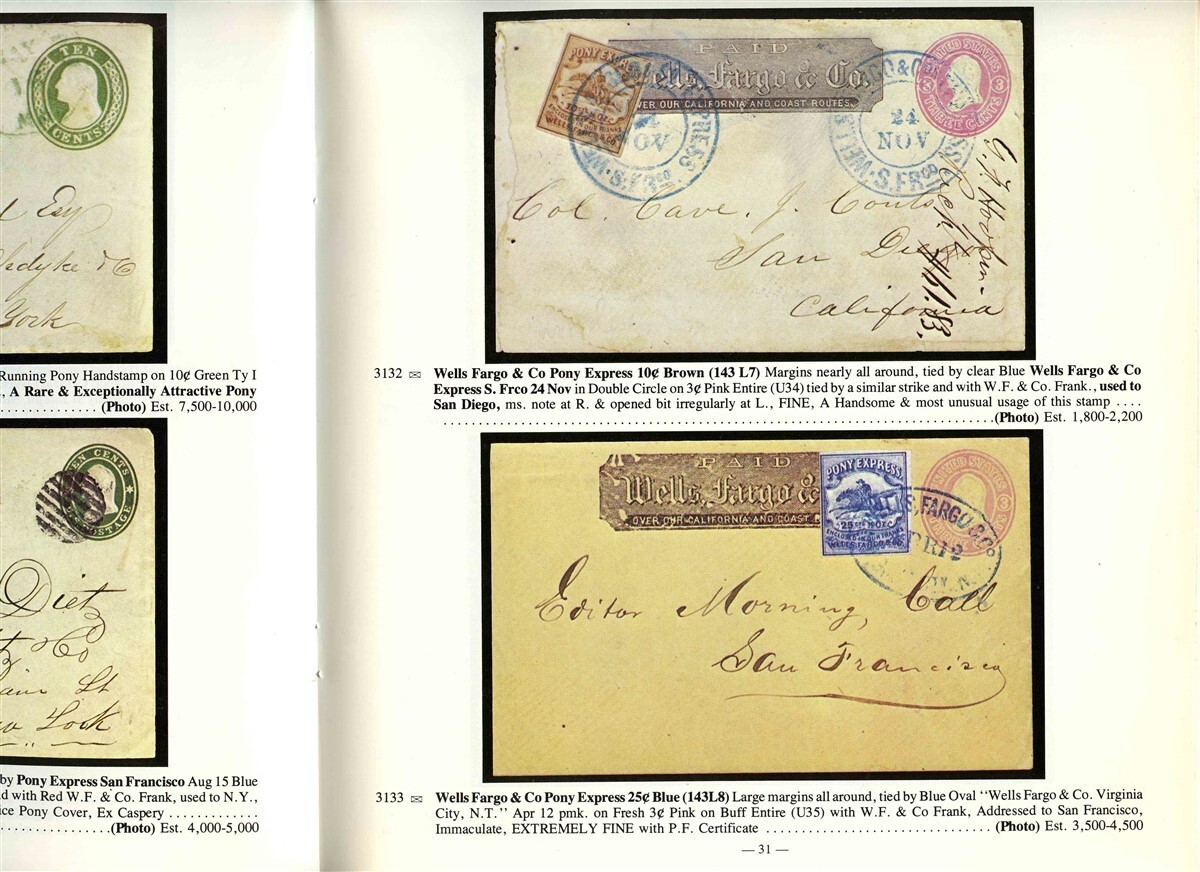 TEN
CENTS
Esq
York
Running Pony Handstamp on 10¢ Green Ty I
, A Rare & Exceptionally Attractive Pony
(Photo) Est. 7,500-10,000
TEN CENTS
POSTAGE
Dietz
& Co
St
York
by Pony Express San Francisco Aug 15 Blue
d with Red W.F. & Co. Frank, used to N.Y.,
ice Pony Cover, Ex Caspery
(Photo) Est. 4,000-5,000
PAID
Wells, Fargo & Co.
OVER OUR CALIFORNIA AND COAST ROUTES.
PONY EXPRESS
UNITED STATES
3 3
THREE CENTS
24
NOV
S. FRCO
Col. Cave. J. Couts
San Diego
California
3132 ✉ Wells Fargo & Co Pony Express 10¢ Brown (143 L7) Margins nearly all around, tied by clear Blue Wells Fargo & Co
Express S. Frco 24 Nov in Double Circle on 3¢ Pink Entire (U34) tied by a similar strike and with W.F. & Co. Frank., used to
San Diego, ms. note at R. & opened bit irregularly at L., FINE, A Handsome & most unusual usage of this stamp ....
(Photo) Est. 1,800-2,200
PAID
Wells, Fargo &
OVER OUR CALIFORNIA AND COAST
PONY EXPRESS.
25 CTS ½ OZ
ENCLOSED IN OUR FRANKS
WELLS, FARGO & CO.
UNITED STATES
S, FARGO & Co
PR 12
Editor Morning Call
San Francisco
3133 ✉ Wells Fargo & Co Pony Express 25¢ Blue (143L8) Large margins all around, tied by Blue Oval "Wells Fargo & Co. Virginia
City, N.T." Apr 12 pmk. on Fresh 3¢ Pink on Buff Entire (U35) with W.F. & Co Frank, Addressed to San Francisco,
Immaculate, EXTREMELY FINE with P.F. Certificate (Photo) Est. 3,500-4,500
— 31 —